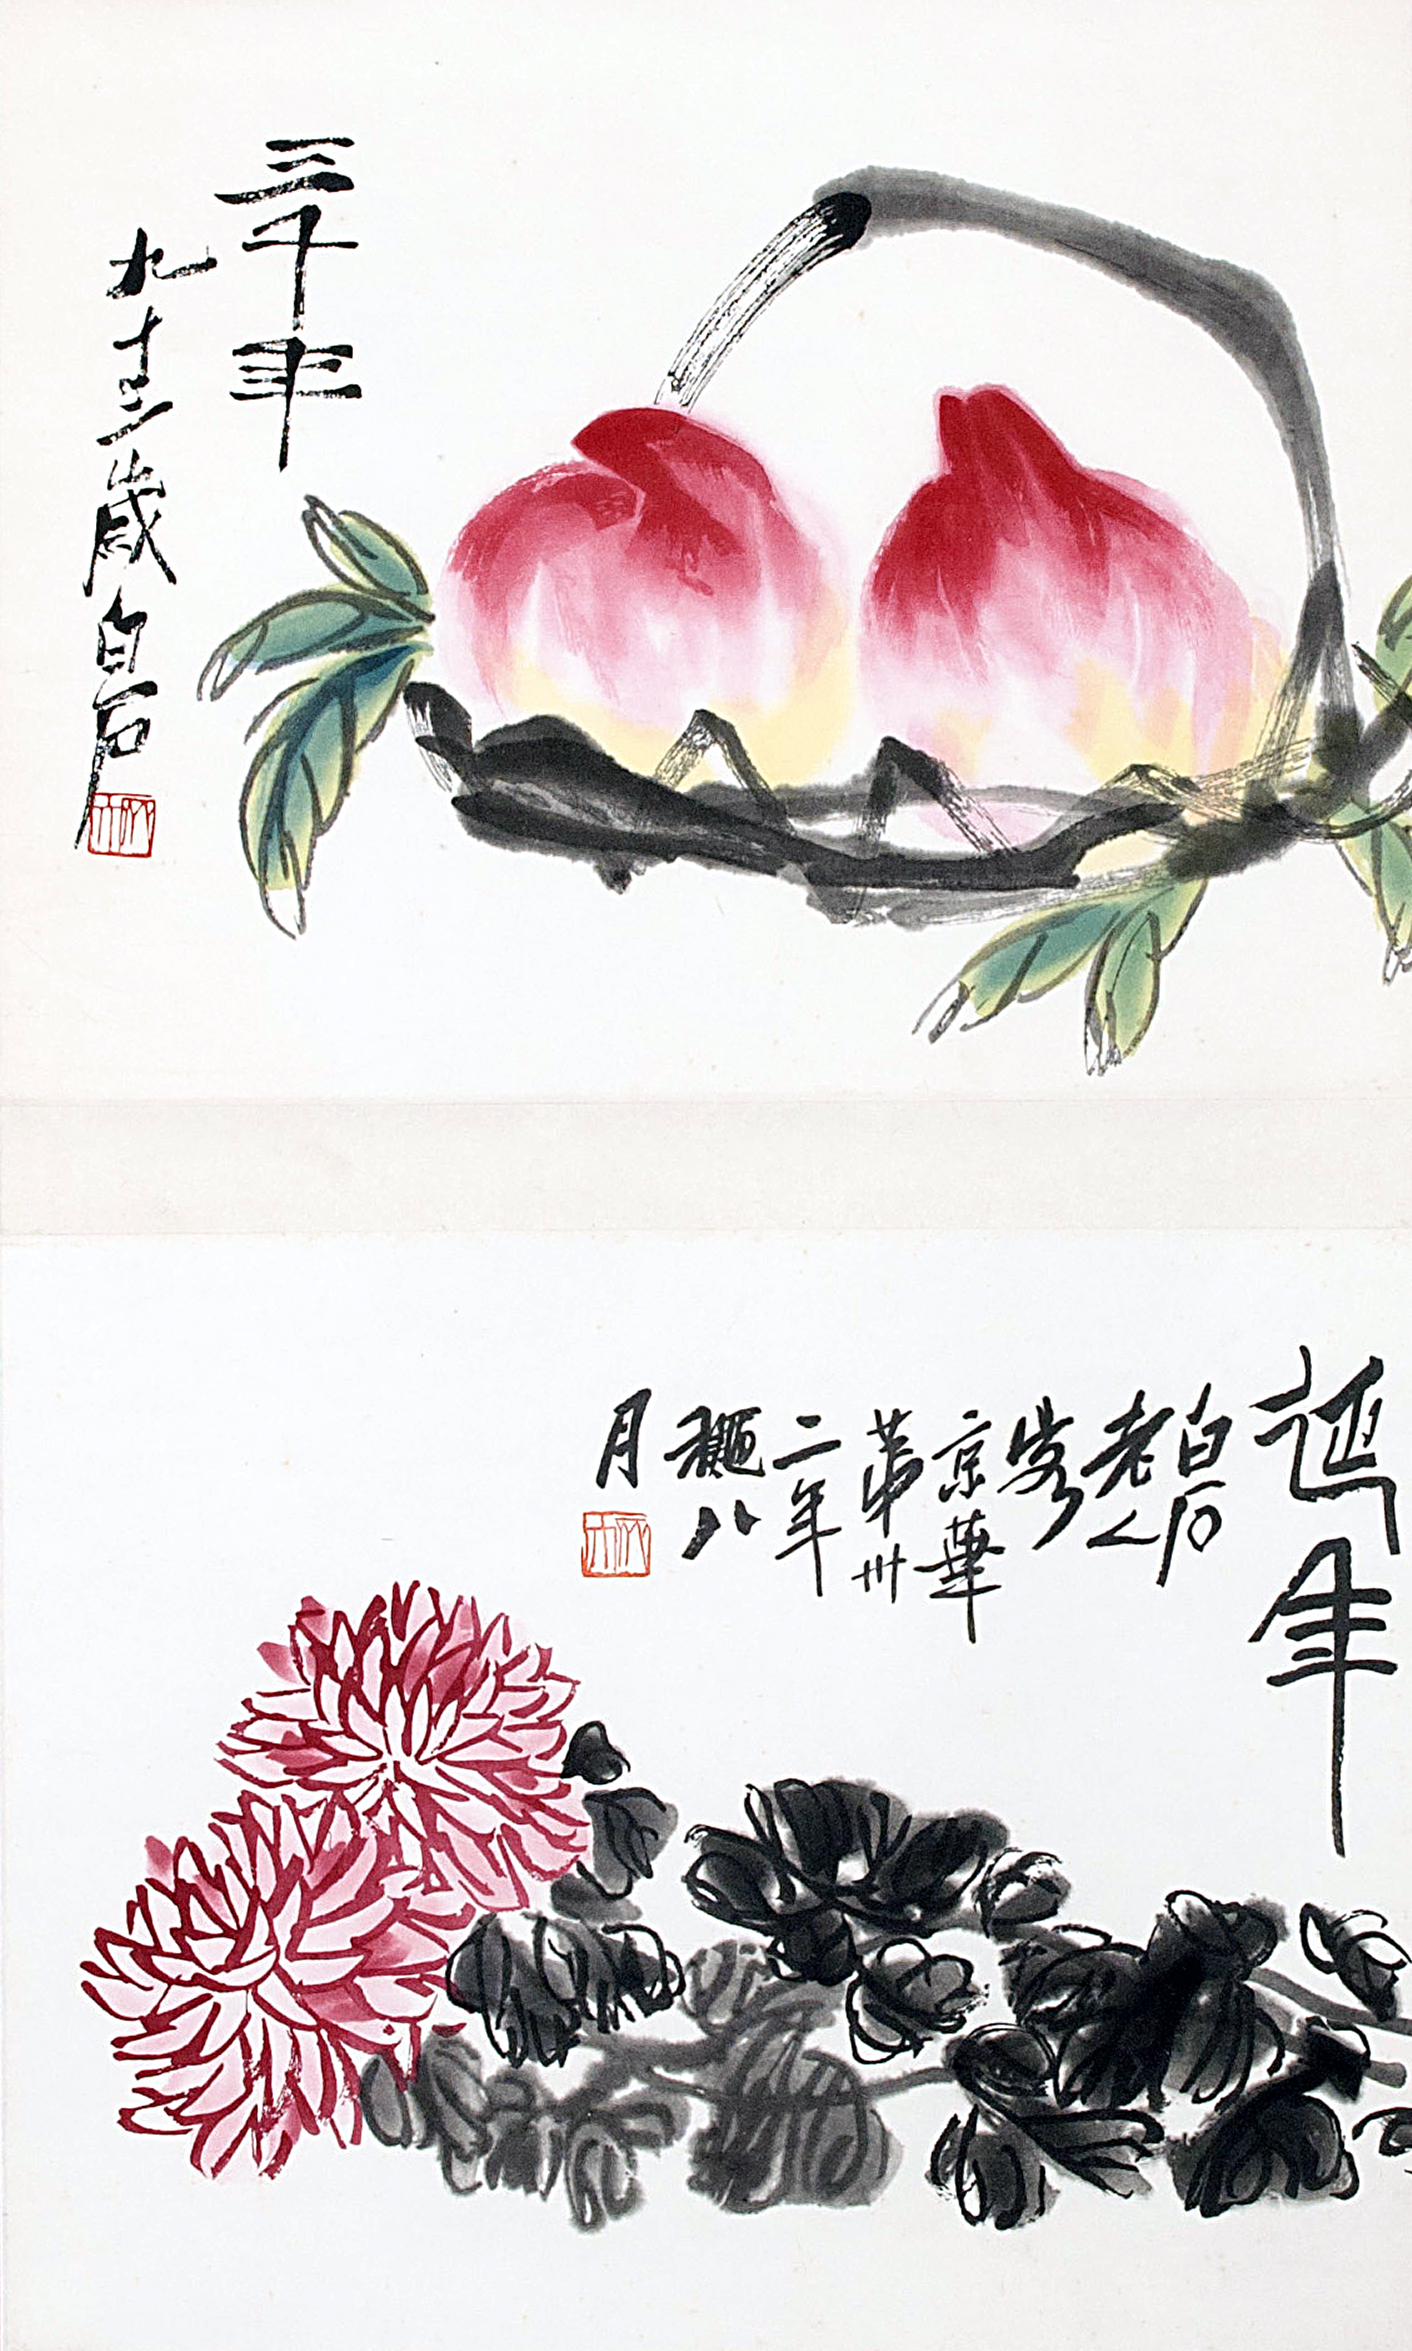 三千年
九十三歲白石
延年
白石
老人
客
京華
第卅
二年
龝八
月